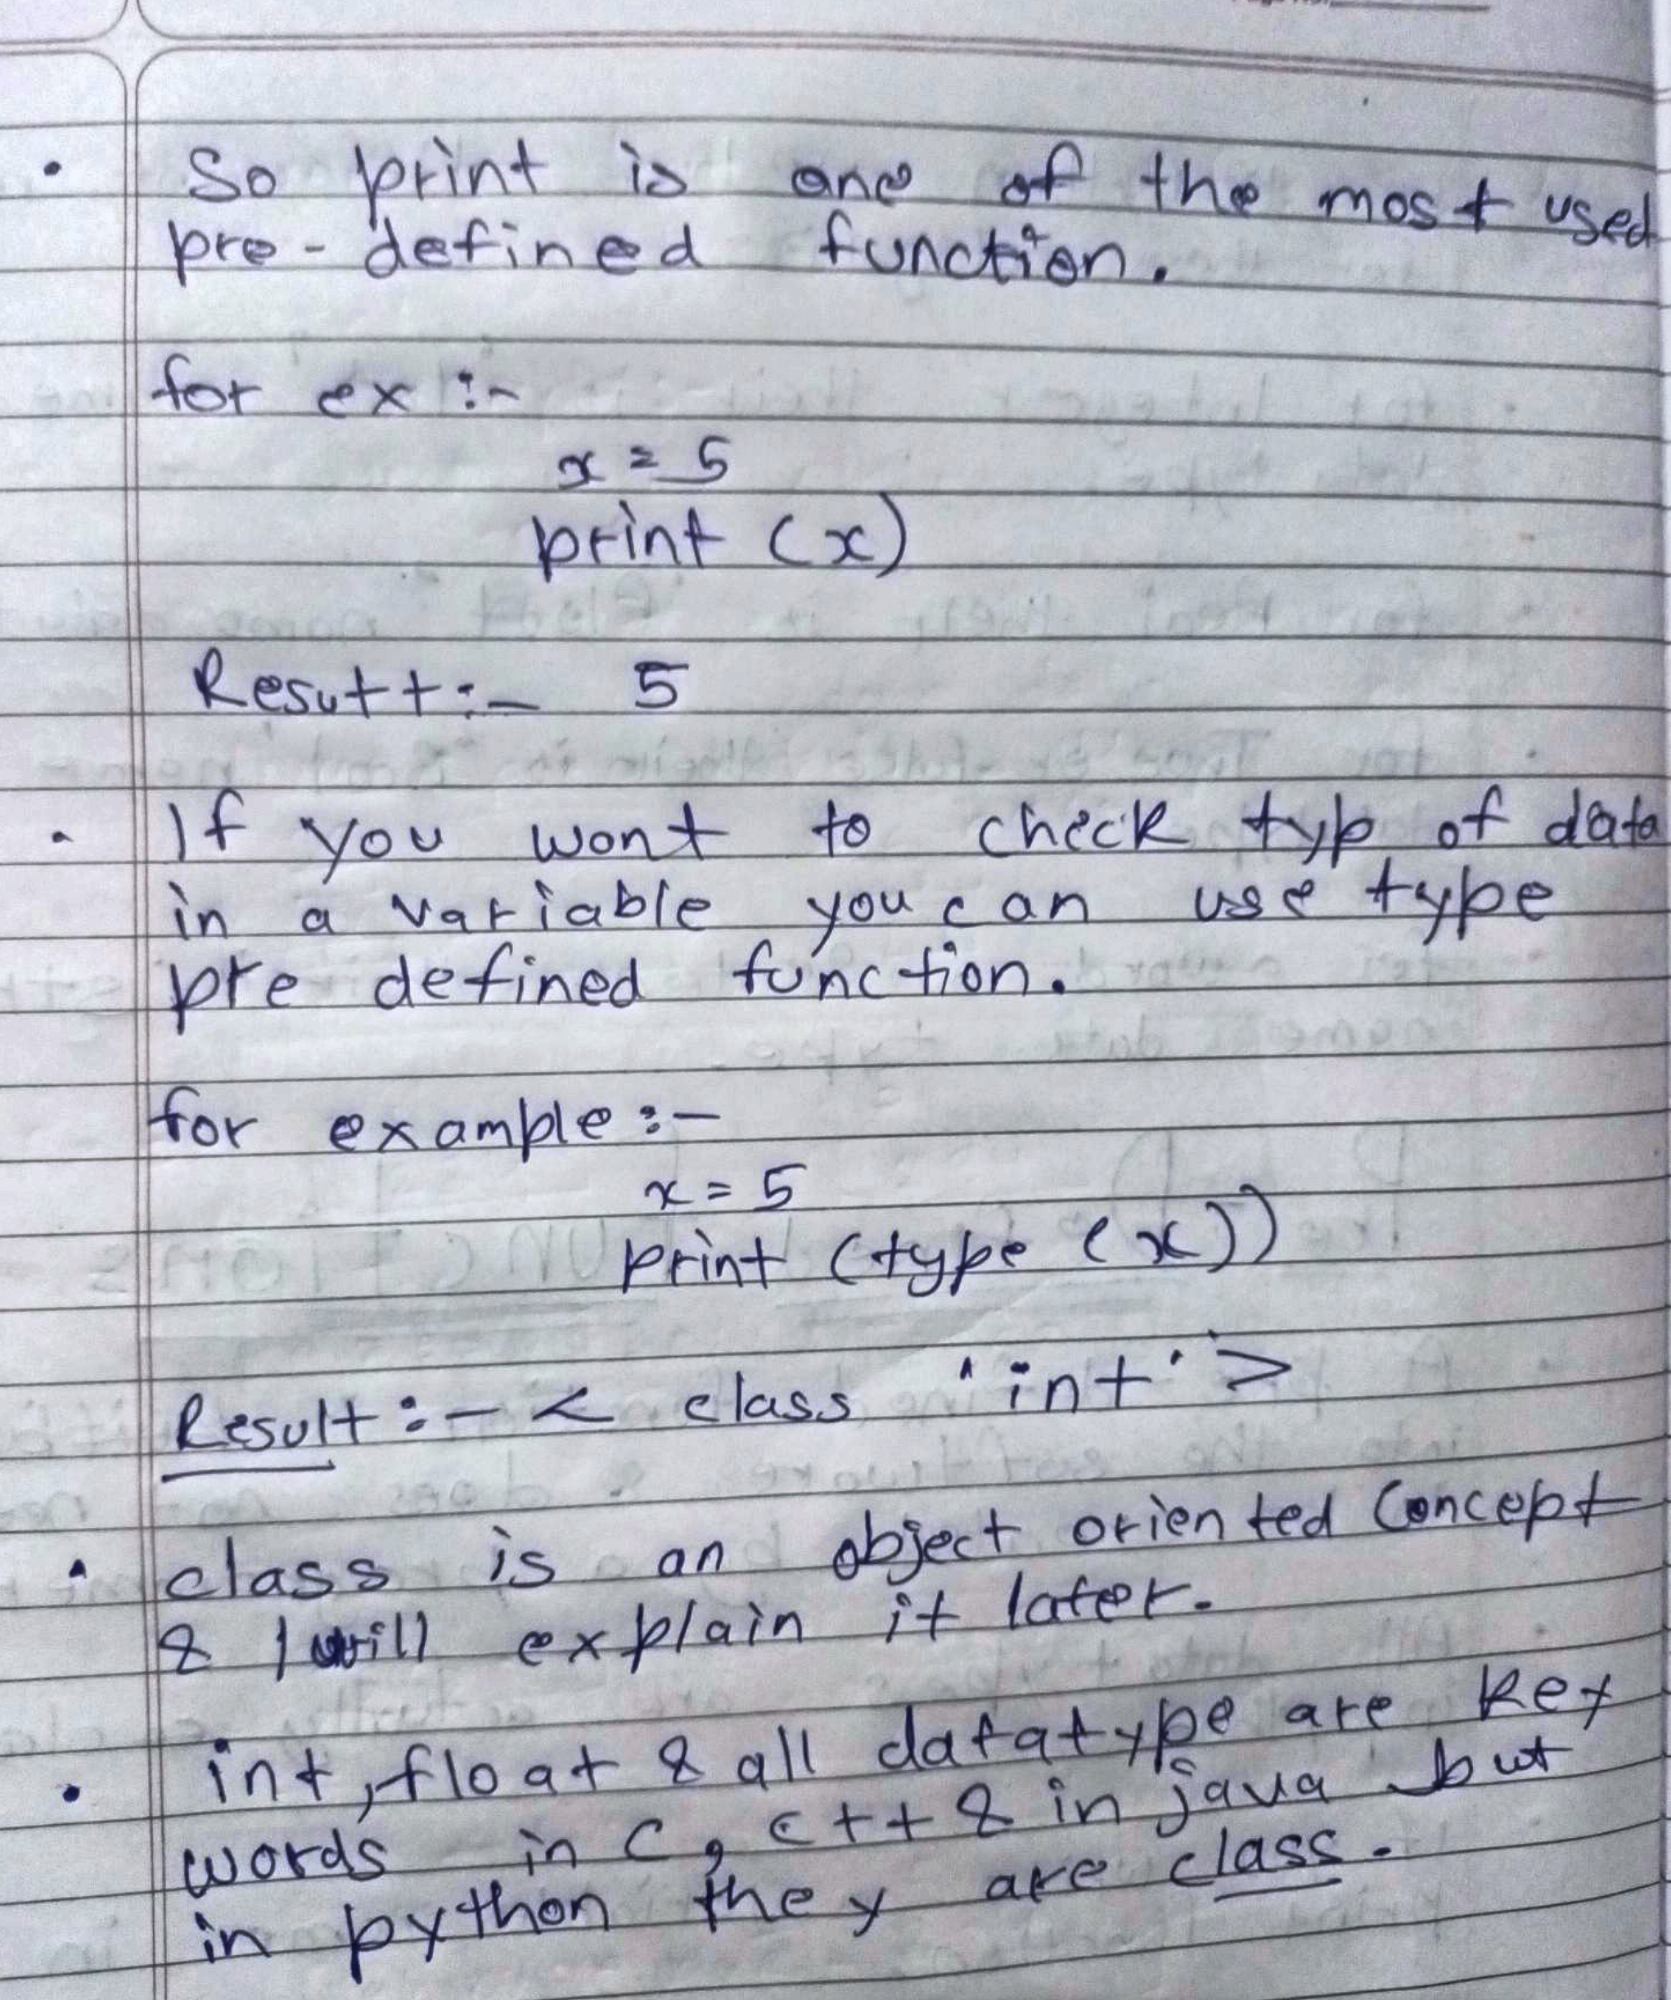 • So print is one of the most used
pre-defined function.
for ex :-
x = 5
print (x)
Resutt :- 5
• If you wont to check typ of data
in a variable you can use type
pre defined function.
for example :-
x = 5
print (type (x))
Result :- < class 'int' >
• class is an object oriented Concept
& I will explain it later.
• int, float & all datatype are key
words in C, c++ & in java but
in python they are class.